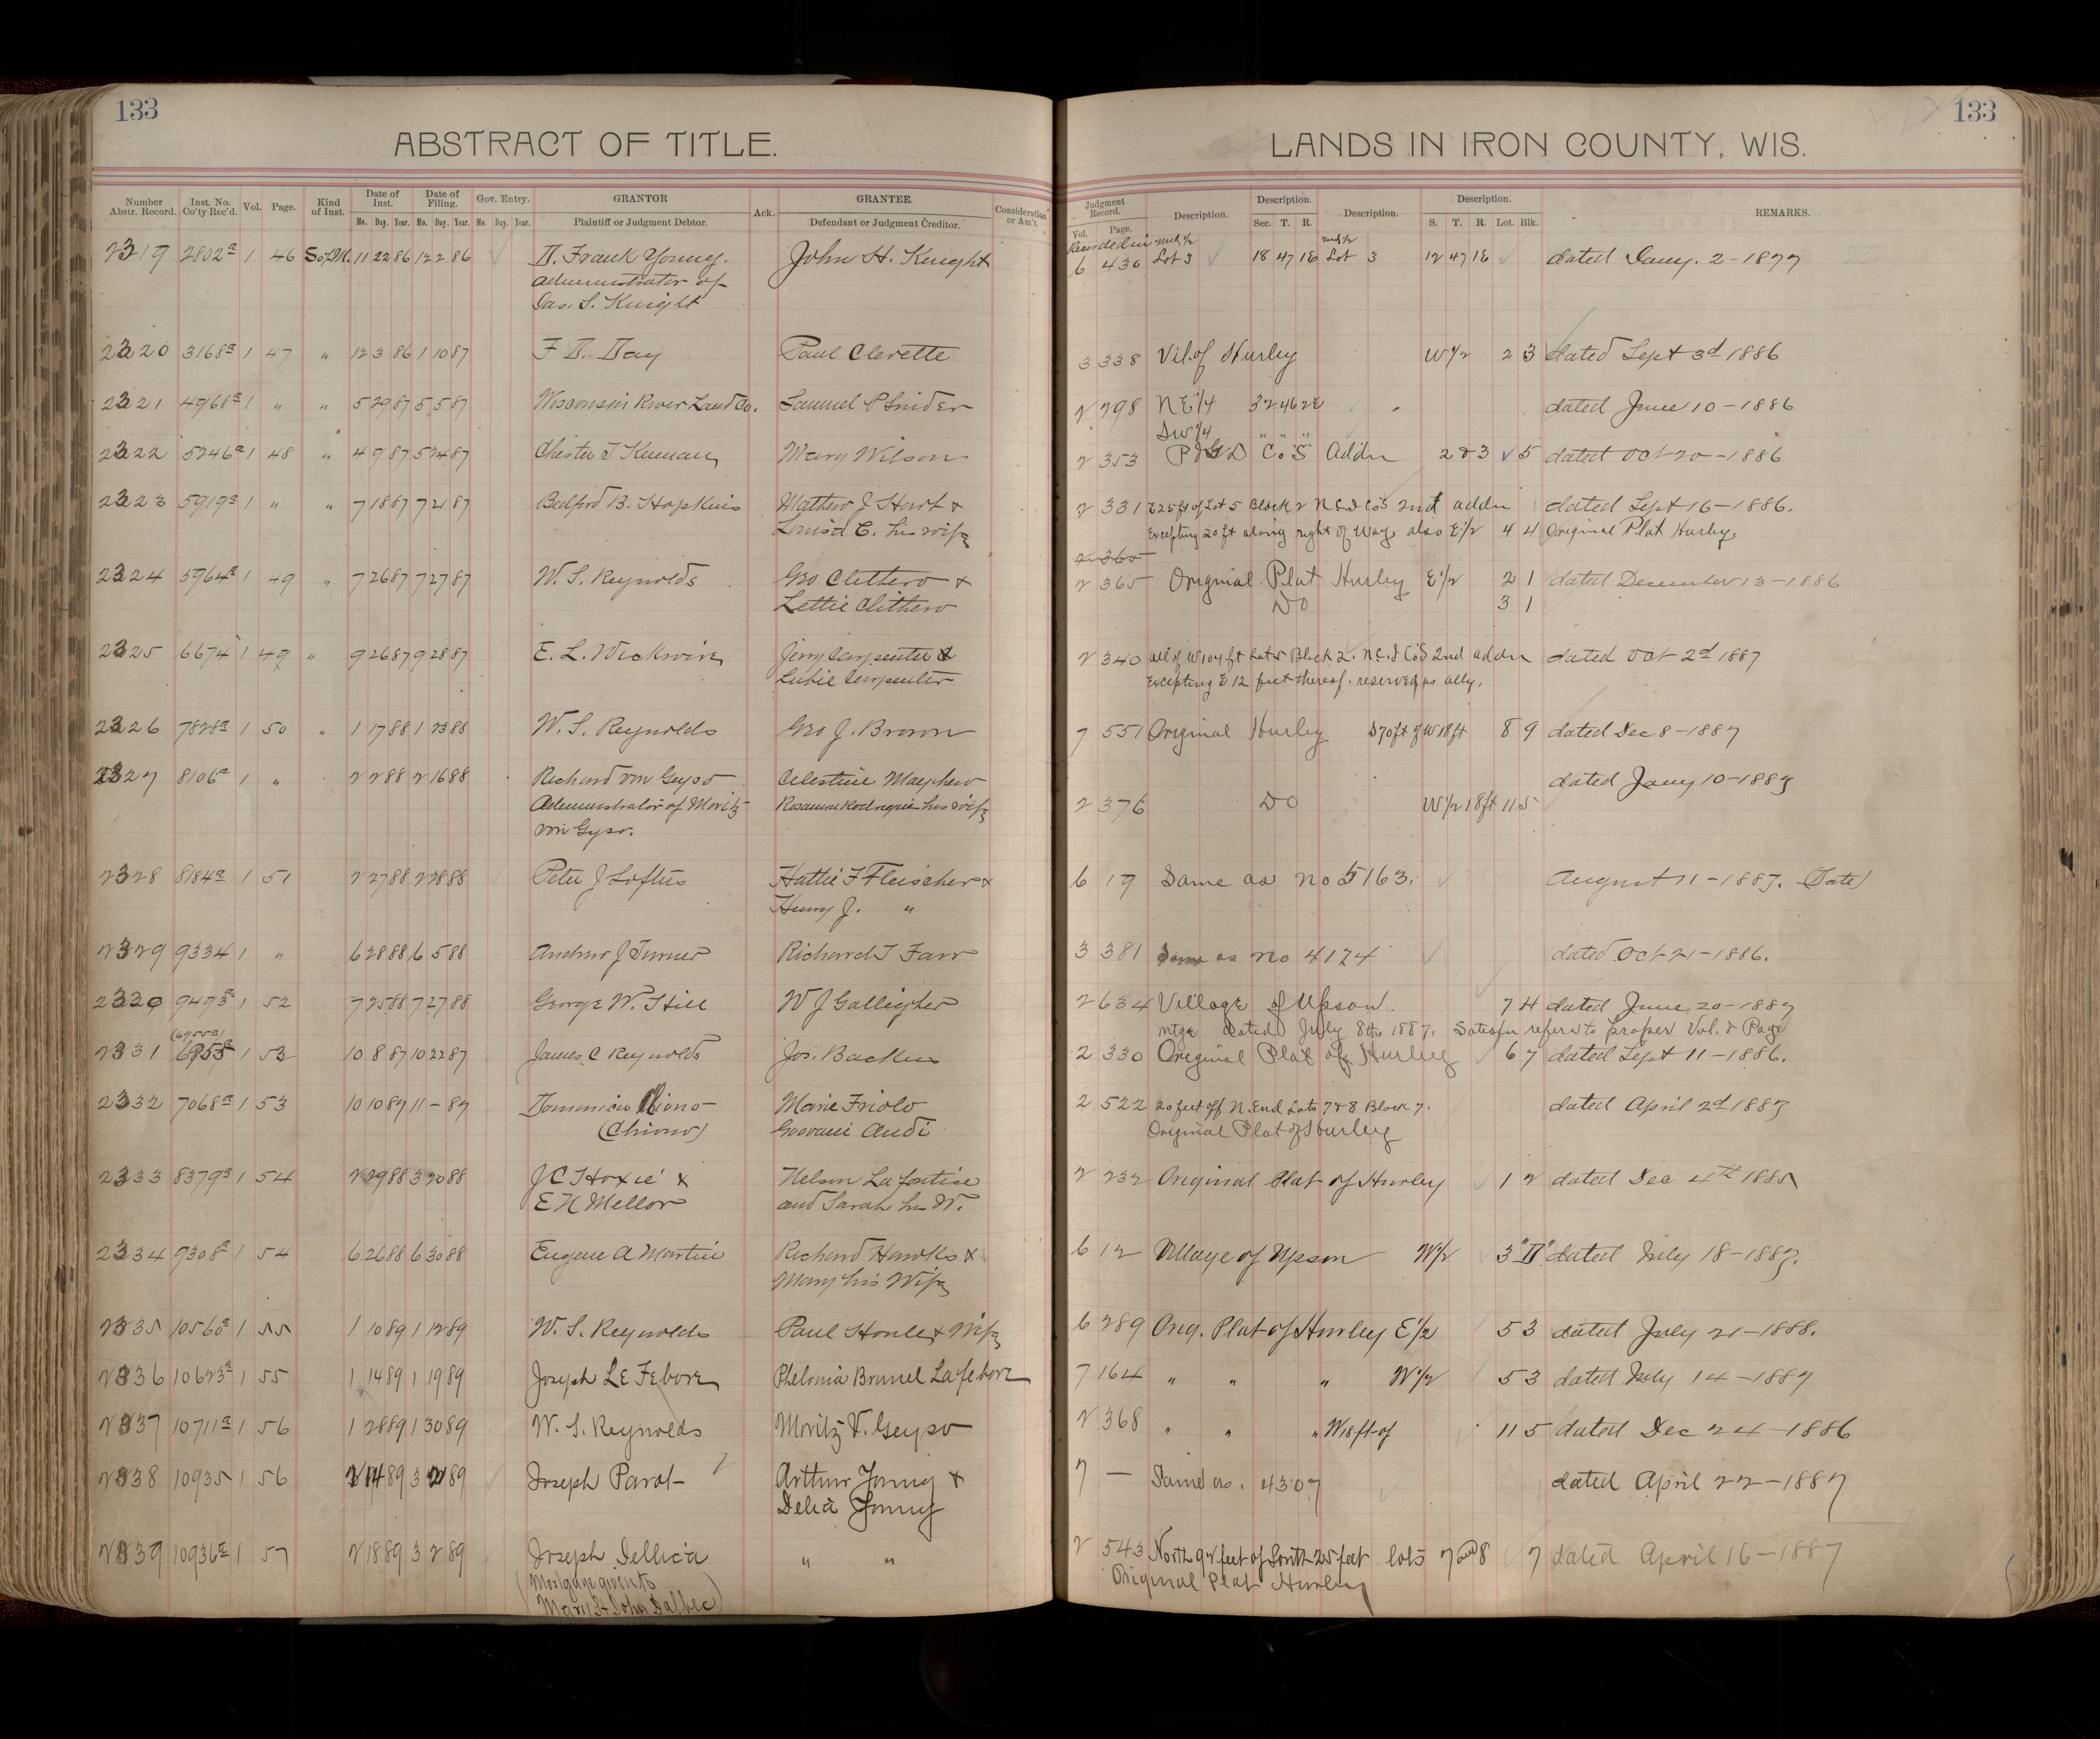 133
133
ABSTRACT OF TITLE.
LANDS IN IRON COUNTY, WIS.
Number Abstr. Record. Inst. No. Co'ty Rec'd. Vol. Page. Kind of Inst. Date of Inst. Mo. Day. Year. Date of Filing. Mo. Day. Year. Gov. Entry. Mo. Day. Year. GRANTOR Plaintiff or Judgment Debtor. Ack. GRANTEE. Defendant or Judgment Creditor. Consideration or Am't.
Judgment Record. Vol. Page. Description. Description. Sec. T. R. Description. Description. S. T. R. Lot. Blk. REMARKS.
Recorded in Und 1/2 Und 1/2
2319 2802a 1 46 S of M. 11 22 86 12 2 86 D. Frank Young. John H. Knight 6 430 Lot 3 18 47 1E Lot 3 12 47 1E dated Jany. 2-1877
administrator of
Jas. S. Knight
2320 3168a 1 47 " 12 3 86 1 10 87 F D. Day Paul Clerette 3 338 Vil. of Hurley W 1/2 2 3 dated Sept 3d 1886
2321 4968a 1 " " 5 29 87 5 5 87 Wisconsin River Land Co. Samuel P Snider 2 298 NE 1/4 32 46 2E dated June 10-1886
SW 1/4 " " "
2322 5246a 1 48 " 4 9 87 5 24 87 Chester T Keenan Mary Wilson 2 353 P & G D Co's Addn 2 & 3 5 dated Oct 20-1886
2323 5919a 1 " " 7 18 87 7 21 87 Bedford B. Hopkins Mathew J Hart & 2 331 E 25 ft of Lot 5 Block 2 N.C.I Co's 2nd addn dated Sept 16-1886.
Louisa C. his wife Excepting 20 ft along right of Way also E 1/2 4 4 Original Plat Hurley.
2 365
2324 5964a 1 49 " 7 26 87 7 27 87 W. S. Reynolds Geo Clethero & 2 365 Original Plat Hurley E 1/2 2 1 dated December 13-1886
Lettie Clithero Do 3 1
2325 6674 1 49 " 9 26 87 9 28 87 E. L. Wickwire Jerry Carpenter & 2 340 all of W 104 ft Lot 5 Block 2. N.C.I Co's 2nd addn dated Oct 2d 1887
Lubie Carpenter Excepting E 12 feet thereof. reserved as ally.
2326 7828a 1 50 " 1 17 88 1 23 88 W. S. Reynolds Geo J. Brown 7 551 Original Hurley S 70 ft of W 18 ft 8 9 dated Dec 8-1887
2327 8106a 1 " 2 2 88 2 16 88 Richard von Geyso Celestine Mayhew dated Jany 10-1887
Administrator of Moritz his wife 2 376 Do W 1/2 18 ft 11 5
von Gyso.
2328 8184a 1 51 2 27 88 2 28 88 Peter J Loftus Hattie F Fleischer & 6 19 Same as no 5163. August 11-1887. (Date)
Henry J. "
2329 9334 1 " 6 28 88 6 5 88 Andrew J Turner Richard T Farr 3 381 Same as no 4124 dated Oct 21-1886.
2320 9493a 1 52 7 25 88 7 27 88 George W. Hill W J Galligher 2 634 Village of Upson. 7 H dated June 20-1887
(6955a) mtge dated July 8th 1887. Satisfn refers to proper Vol. & Page
2331 6955a 1 53 10 8 87 10 22 87 James C Reynolds Jos. Backen 2 330 Original Plat of Hurley 6 7 dated Sept 11-1886.
2332 7068a 1 53 10 10 87 11 - 87 Dominico Marie Friolo 2 522 20 feet off N. End Lots 7 & 8 Block 7. dated April 2d 1887
(Chiono) Geovani Audi Original Plat of Hurley
2333 8379a 1 54 2 29 88 3 20 88 J C Hoxie & Nelson Lafontise 2 232 Original Plat of Hurley 1 2 dated Dec 4th 1885
E N Mellor and Sarah his W.
2334 9308a 1 54 6 26 88 6 30 88 Eugene A Martin Richard Hawks & 6 12 Village of Upson W 1/2 3 "D" dated July 18-1887.
Mary his Wife
2335 10560a 1 55 1 10 89 1 12 89 W. S. Reynolds Paul Houle & Wife 6 289 Orig. Plat of Hurley E 1/2 5 3 dated July 21-1888.
2336 10623a 1 55 1 14 89 1 19 89 Joseph LE Febore Phelonia Brunel Lafebore 7 164 " " " W 1/2 5 3 dated July 14-1887
2337 10711a 1 56 1 28 89 1 30 89 W. S. Reynolds Moritz V. Geyso 2 368 " " " W 18 ft of 11 5 dated Dec 24-1886
2338 10935 1 56 2 14 89 3 2 89 Joseph Parot Arthur Jonny & 7 — Same as. 4307 dated April 22-1887
Delia Jonny
2339 10936a 1 57 2 18 89 3 2 89 Joseph Dellica " " 2 543 North 92 feet of South 25 feet lots 7 and 8 7 dated April 16-1887
(Mortgage given to Original Plat Hurley
Mary St John Dalbec)